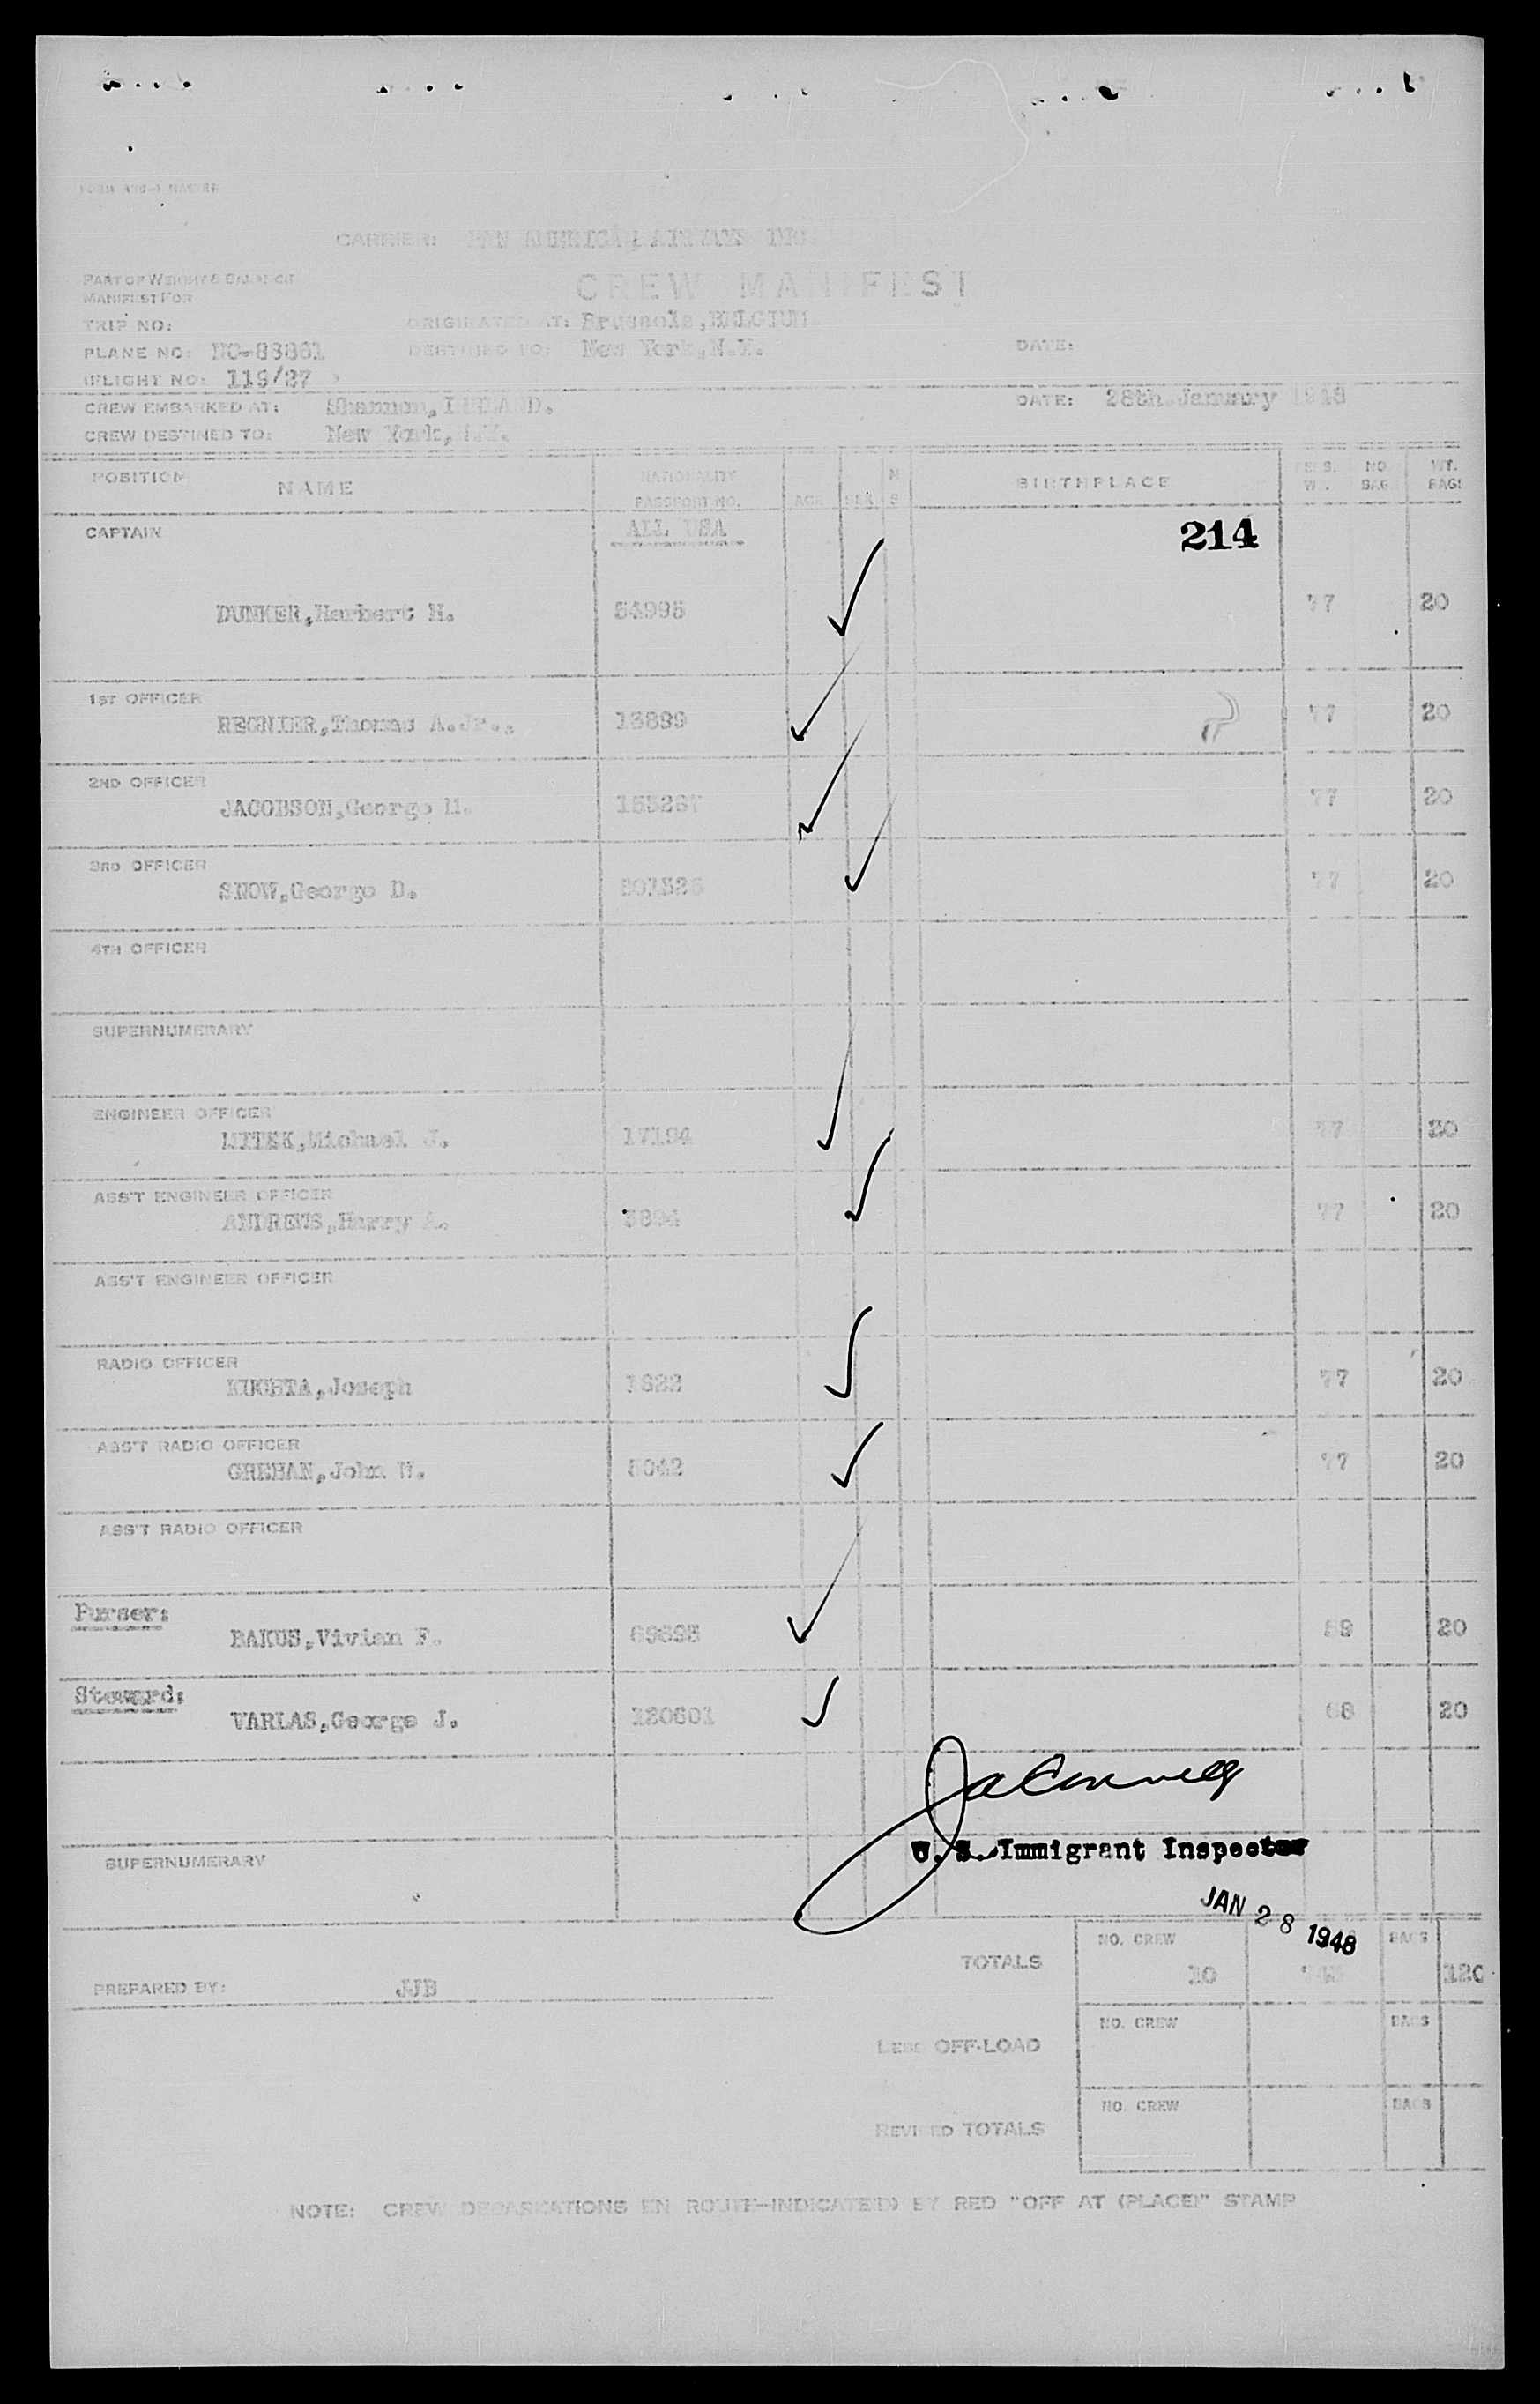 CARRIER: PAN AMERICAN AIRWAYS INC
PART OF WEIGHT & BALANCE
MANIFEST FOR
CREW MANIFEST
TRIP NO:
ORIGINATED AT: Brussels,BELGIUM
PLANE NO: NC-88861
DESTINED TO: New York,N.Y.
DATE:
FLIGHT NO: 119/27
CREW EMBARKED AT: Shannon, IRELAND.
DATE: 28th.January 1948
CREW DESTINED TO: New York, N.Y.
POSITION NAME NATIONALITY PASSPORT NO. AGE SEX M S BIRTHPLACE NO. BAG WT. BAGS
CAPTAIN ALL USA 214
DUNKER,Herbert H. 54995 77 20
1ST OFFICER
REGNIER,Thomas A.Jr., 13899 77 20
2ND OFFICER
JACOBSON,George M. 77 20
3RD OFFICER
SNOW,George D. 77 20
4TH OFFICER
SUPERNUMERARY
ENGINEER OFFICER
MITEK,Michael J. 17194 77 20
ASS'T ENGINEER OFFICER
ANDREWS,Harry A. 77 20
ASS'T ENGINEER OFFICER
RADIO OFFICER
KUCHTA,Joseph 77 20
ASS'T RADIO OFFICER
GREHAN,John W. 77 20
ASS'T RADIO OFFICER
Purser:
BAKUS,Vivian F. 20
Steward:
VARLAS,George J. 20
U. S. Immigrant Inspector
SUPERNUMERARY
JAN 28 1948
TOTALS NO. CREW 10 BAGS
PREPARED BY: JJB
LESS OFF-LOAD NO. CREW BAGS
REVISED TOTALS NO. CREW BAGS
NOTE: CREW DEBARKATIONS EN ROUTE—INDICATED BY RED "OFF AT (PLACE)" STAMP